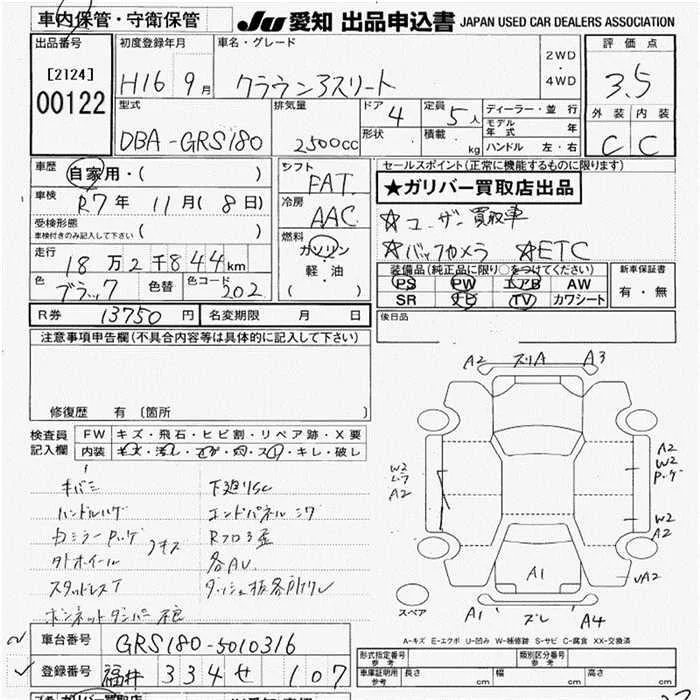 車内保管・守衛保管
JU 愛知 出品申込書 JAPAN USED CAR DEALERS ASSOCIATION
出品番号
[2124]
00122
初度登録年月
H16 9月
車名・グレード
クラウンアスリート
2WD
・
4WD
評価点
3.5
外装 内装
C C
型式
DBA-GRS180
排気量
2500cc
ドア 4
定員 5人
形状
積載 kg
ディーラー・並行
モデル年式 年
ハンドル 左・右
車歴
自家用・( )
車検
R7年 11月(8日)
受検形態
車検付きのみ記入して下さい ( )
走行
18万2千844km
色
ブラック
色替
色コード 202
シフト
FAT
冷房
AAC
燃料
ガソリン
軽・油
( )
セールスポイント(正常に機能するものに限ります)
★ガリバー買取店出品
☆ユーザー買取車
☆バックカメラ ☆ETC
装備品(純正品に限り○をつけてください)
PS PW エアB AW
SR ナビ TV カワシート
新車保証書
有・無
後日品
R券 13750円
名変期限 月 日
注意事項申告欄(不具合内容等は具体的に記入して下さい)
修復歴 有 [箇所 ]
検査員
記入欄
FW キズ・飛石・ヒビ割・リペア跡・X要
内装 キズ・汚レ・コゲ・穴・スレ・キレ・破レ
キバミ
ハンドルハゲ
カミラーPハゲ
タトホイール
スタッドレスT
ボンネットダンパー不良
下廻りSC
エンドパネルシワ
各AU
A2 ズリA A3
W2
A2
A2
W2
Pハゲ
W2
A2
A1
A2
スペア
A1 ズレ A4
A-キズ E-エクボ U-凹み W-補修跡 S-サビ C-腐食 XX-交換済
車台番号
GRS180-5010316
登録番号
福井 334 せ 107
形式指定番号
参考
類別区分番号
参考
車庫証明用
参考
長さ cm
幅 cm
高さ cm